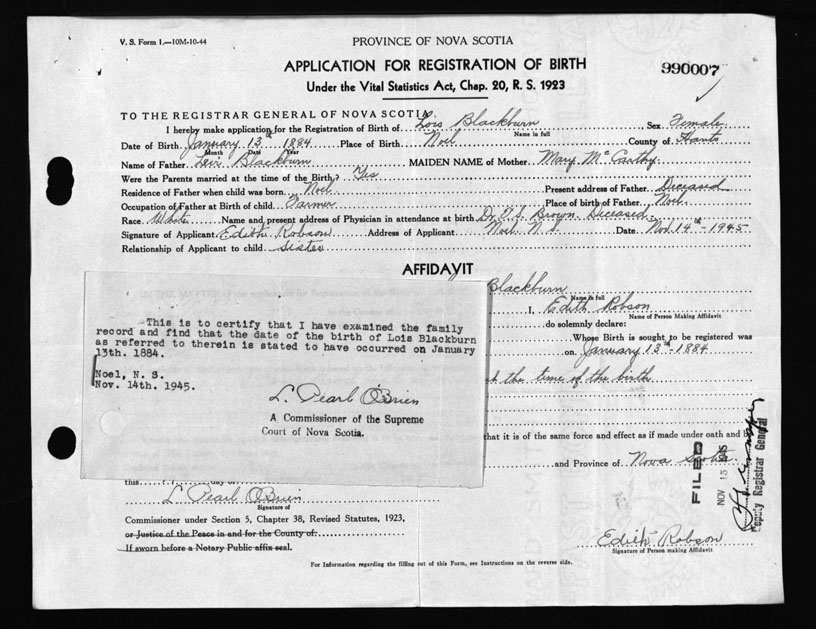 V. S. Form 1.—10M-10-44
PROVINCE OF NOVA SCOTIA
APPLICATION FOR REGISTRATION OF BIRTH
990007
Under the Vital Statistics Act, Chap. 20, R. S. 1923
TO THE REGISTRAR GENERAL OF NOVA SCOTIA
I hereby make application for the Registration of Birth of Lois Blackburn Sex Female
Name in full
Date of Birth January 13th 1884 Place of Birth Noel County of Hants
Month Date Year
Name of Father Levi Blackburn MAIDEN NAME of Mother Mary McCarthy
Were the Parents married at the time of the Birth? Yes
Residence of Father when child was born Noel Present address of Father Deceased
Occupation of Father at Birth of child Farmer Place of birth of Father Noel
Race White Name and present address of Physician in attendance at birth Dr. Brown Deceased
Signature of Applicant Edith Robson Address of Applicant Noel N. S. Date Nov. 14th - 1945
Relationship of Applicant to child Sister
AFFIDAVIT
Blackburn
Name in full
I, Edith Robson
Name of Person Making Affidavit
do solemnly declare:
Whose Birth is sought to be registered was
on January 13th - 1884
the time of the birth
that it is of the same force and effect as if made under oath and
and Province of Nova Scotia
This is to certify that I have examined the family
record and find that the date of the birth of Lois Blackburn
as referred to therein is stated to have occurred on January
13th. 1884.
Noel, N. S.
Nov. 14th. 1945.
L. Pearl O'Brien
A Commissioner of the Supreme
Court of Nova Scotia.
this day of
L. Pearl O'Brien
Signature of
Commissioner under Section 5, Chapter 38, Revised Statutes, 1923,
or Justice of the Peace in and for the County of
If sworn before a Notary Public affix seal.
FILED
NOV 15 1945
Deputy Registrar General
Edith Robson
Signature of Person making Affidavit
For Information regarding the filling out of this Form, see Instructions on the reverse side.